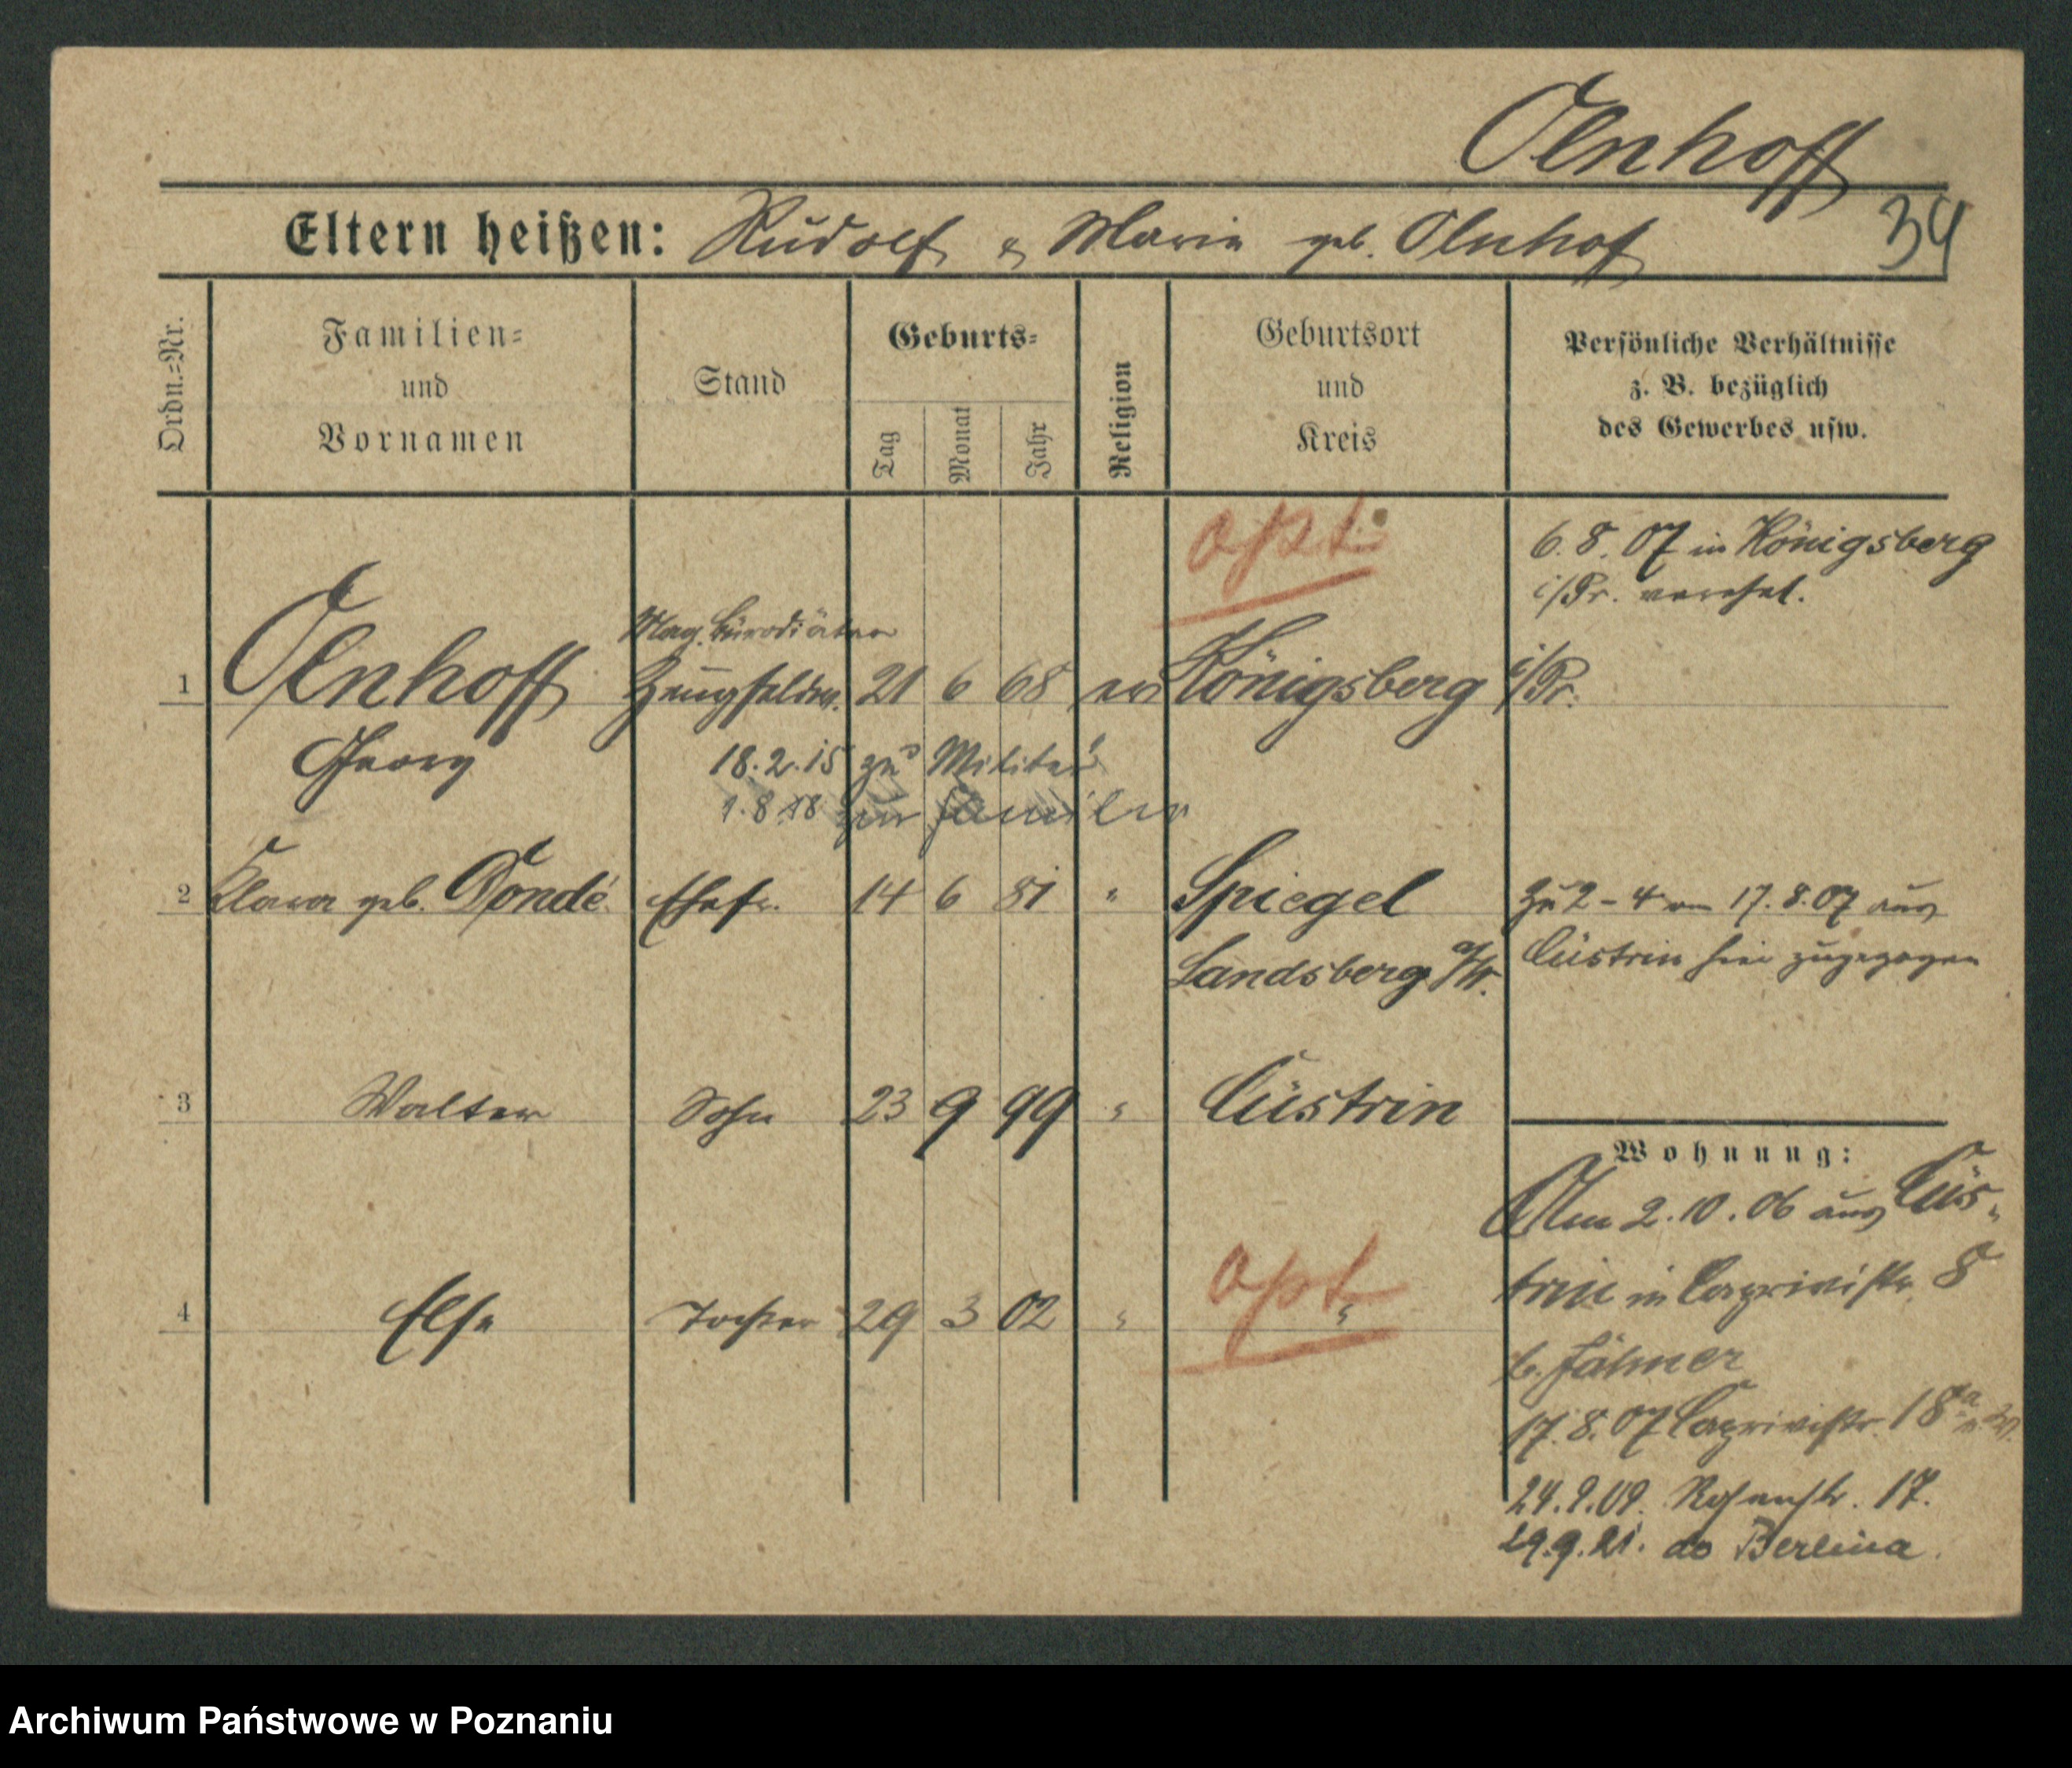 Olnhoff
Eltern heißen: Rudolf u. Maria geb. Olnhof
34
Ordn.-Nr.
Familien- und Vornamen
Stand
Geburts-
Tag
Monat
Jahr
Religion
Geburtsort und Kreis
Persönliche Verhältnisse
z. B. bezüglich
des Gewerbes usw.
opt.
6. 8. 07 in Königsberg
i/Pr. verehel.
Mag. Bürodiätar
1 Olnhoff Zeugfeldw. 21 6 68 ev Königsberg i/Pr.
Georg
18.2.15 zu Militär
1.8.18 zur Familie
2 Klara geb. Dondé Ehefr. 14 6 81 " Spiegel
Landsberg a/W.
Zu 2 - 4 am 17. 8. 07 aus
Cüstrin hier zugezogen
3 Walter Sohn 23 9 99 " Cüstrin
opt.
4 Else Tochter 29 3 02 " "
Wohnung:
Am 2. 10. 06 aus Cüs-
trin in Caprivistr. 8
b. Fähmer
17. 8. 07 Caprivistr. 18a
24. 9. 09. Rosenstr. 17.
29.9.21. do Berlina.
Archiwum Państwowe w Poznaniu